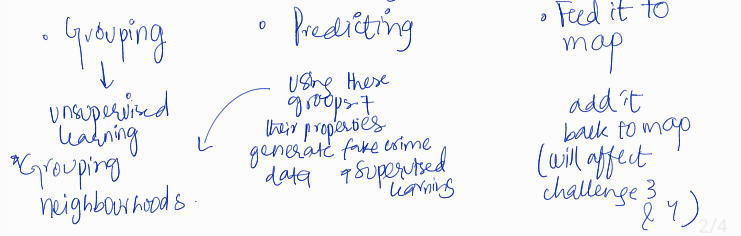 • Grouping
unsupervised
learning
*Grouping
neighbourhoods.
• Predicting
using these
groups +
their properties
generate fake crime
data + Supervised
learning
• Feed it to
map
add it
back to map
(will affect
challenge 3
& 4)
2/4